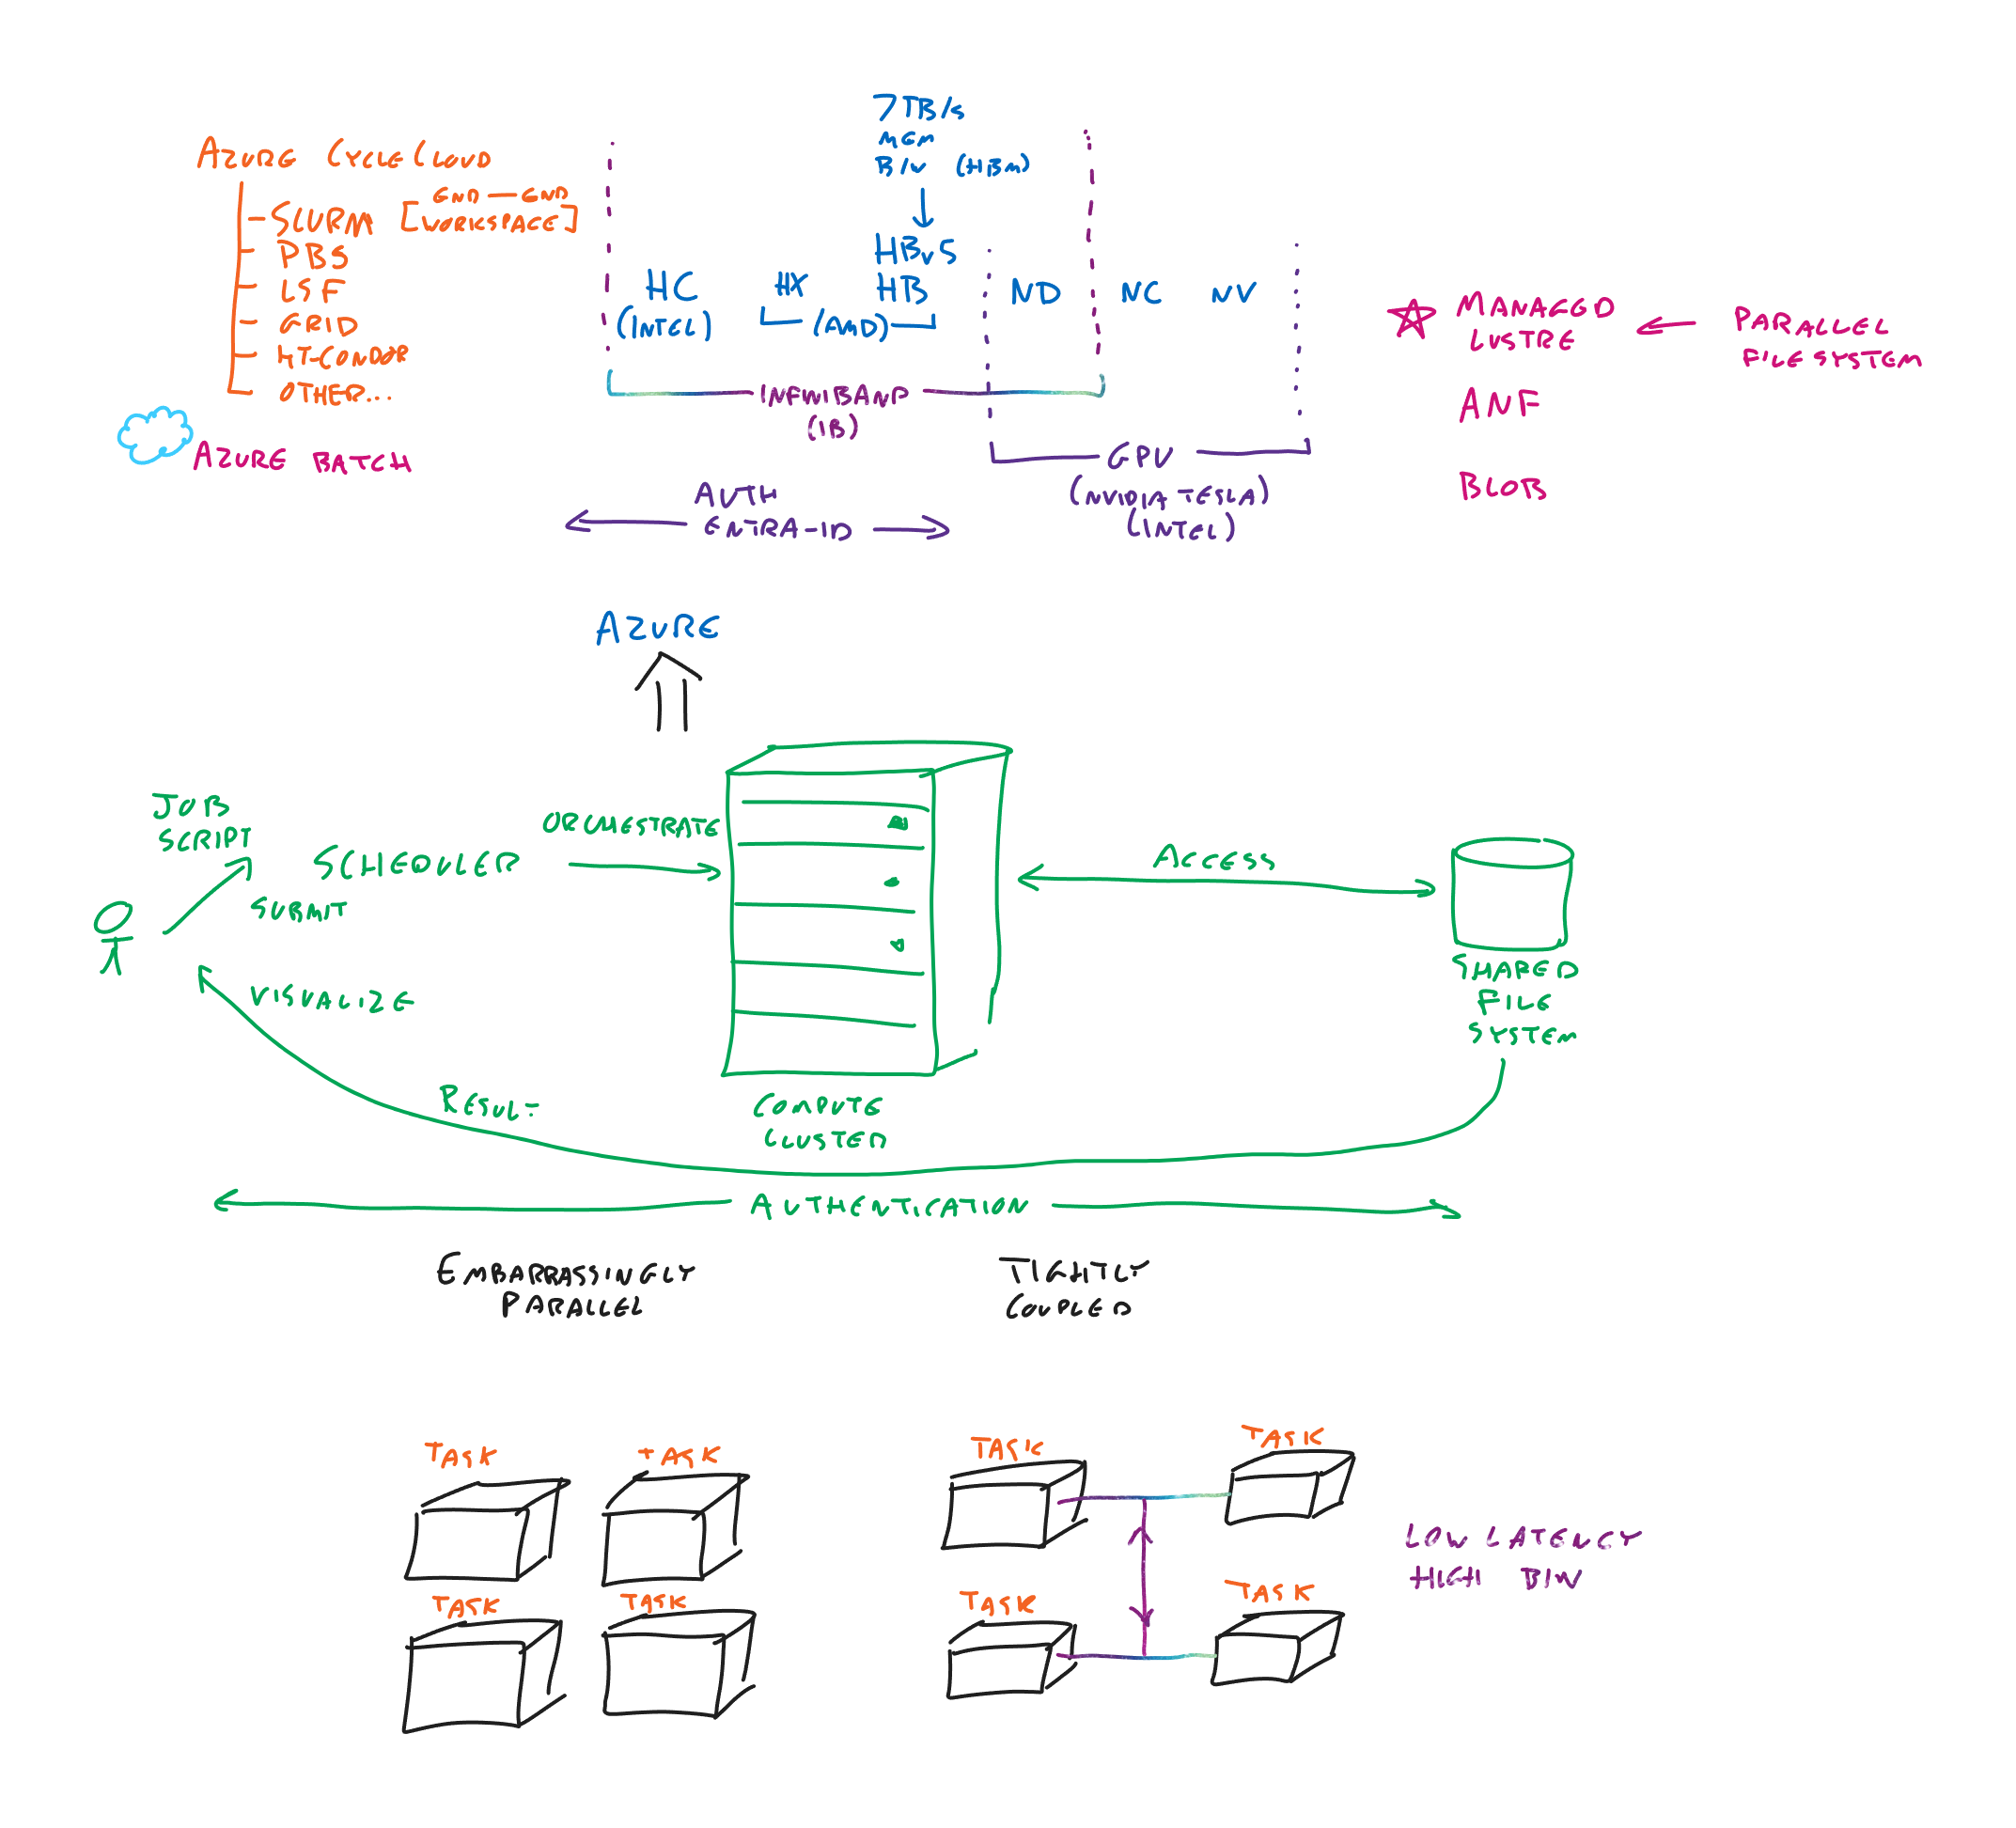 7TB/s
MEM
B/W (HBM)
AZURE CYCLECLOUD
END — END
SLURM [WORKSPACE]
PBS
LSF
GRID
HT-CONDOR
OTHER...
AZURE BATCH
HBv5
HC HX HB ND NC NV
(INTEL) (AMD)
INFINIBAND
(IB)
GPU
(NVIDIA TESLA)
(INTEL)
AUTH
ENTRA-ID
MANAGED
LUSTRE
PARALLEL
FILE SYSTEM
ANF
BLOB
AZURE
JOB
SCRIPT
SUBMIT
SCHEDULER
ORCHESTRATE
ACCESS
SHARED
FILE
SYSTEM
VISUALIZE
RESULT
COMPUTE
CLUSTER
AUTHENTICATION
EMBARRASSINGLY
PARALLEL
TIGHTLY
COUPLED
TASK TASK
TASK TASK
TASK TASK
TASK TASK
LOW LATENCY
HIGH B/W